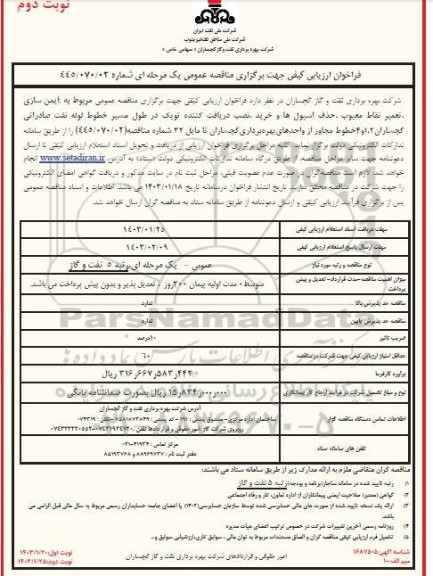 نوبت دوم
شرکت ملی نفت ایران
شرکت ملی مناطق نفتخیز جنوب
شرکت بهره برداری نفت و گاز گچساران - سهامی خاص -
فراخوان ارزیابی کیفی جهت برگزاری مناقصه عمومی یک مرحله ای شماره ۴۴۵/۰۷۰/۰۲
شرکت بهره برداری نفت و گاز گچساران در نظر دارد فراخوان ارزیابی کیفی جهت برگزاری مناقصه عمومی مربوط به :ایمن سازی
،تعمیر نقاط معیوب ،حذف اسپول ها و خرید ،نصب دریافت کننده توپک در طول مسیر خطوط لوله نفت صادراتی
گچساران ۲،۱و۴خطوط مجاور از واحدهای بهره برداری گچساران تا مایل ۳۲ شماره مناقصه(۴۴۵/۰۷۰/۰۲) را از طریق سامانه
تدارکات الکترونیکی دولت برگزار نماید. کلیه مراحل برگزاری فراخوان ارزیابی کیفی از دریافت و تحویل اسناد استعلام ارزیابی کیفی تا ارسال
دعوتنامه جهت سایر مراحل مناقصه، از طریق درگاه سامانه تدارکات الکترونیکی دولت (ستاد) به آدرس www.setadiran.ir انجام
خواهد شد. لازم است مناقصه گران در صورت عدم عضویت قبلی، مراحل ثبت نام در سایت مذکور و دریافت گواهی امضای الکترونیکی
را جهت شرکت در مناقصه محقق سازند. تاریخ انتشار فراخوان درسامانه تاریخ ۱۴۰۳/۰۱/۱۸ می باشد. اطلاعات و اسناد مناقصه عمومی
پس از برگزاری فرآیند ارزیابی کیفی و ارسال دعوتنامه از طریق سامانه ستاد به مناقصه گران ارسال خواهد شد.
مهلت دریافت اسناد استعلام ارزیابی کیفی ۱۴۰۳/۰۱/۲۵
مهلت ارسال پاسخ استعلام ارزیابی کیفی ۱۴۰۳/۰۲/۰۹
نوع مناقصه و رتبه مورد نیاز عمومی - یک مرحله ای رتبه ۵ نفت و گاز
میزان اهمیت مناقصه-مدت قرارداد- تعدیل و پیش پرداخت متوسط- مدت اولیه پیمان ۳۰۰روز ، تعدیل پذیر و بدون پیش پرداخت می باشد.
مناقصه حد پذیرش بالا ندارد
مناقصه حد پذیرش پایین ندارد
ضریب تاثیر ۱۰درصد
حداقل امتیاز ارزیابی کیفی جهت شرکت در مناقصه ۶۰
برآورد کارفرما ۳۱۶ر۶۶۷ر۵۸۳ر۴۴۲ ریال
نوع و مبلغ تضمین شرکت در فرآیند ارجاع کار پیمانکاری ۱۵ر۸۳۴ر۰۰۰ر۰۰۰ ریال بصورت ضمانتنامه بانکی
اطلاعات تماس دستگاه مناقصه گزار
آدرس شرکت بهره برداری نفت و گاز گچساران
تلفن های سامانه ستاد
مرکز تماس : ۴۱۹۳۴-۰۲۱
دفتر ثبت نام : ۸۸۹۶۹۷۳۷ و ۸۵۱۹۳۷۶۸
مناقصه گران متقاضی ملزم به ارائه مدارک زیر از طریق سامانه ستاد می باشند:
۱) رتبه تایید شده در سامانه ساجار(برنامه و بودجه)رتبه ۵ نفت و گاز
۲) گواهی (معتبر) صلاحیت ایمنی پیمانکاران از اداره تعاون، کار و رفاه اجتماعی
۳) ارائه یک نسخه تایید شده از صورت های مالی حسابرسی شده توسط سازمان حسابرسی(۱۴۰۲) یا اعضای جامعه حسابداران رسمی مربوط به سال مالی قبل الزامی می
باشد.
۴) روزنامه رسمی آخرین تغییرات شرکت در خصوص ترکیب اعضای هیات مدیره
۵) تکمیل فرم ارزیابی کیفی مناقصه گران و الصاق مستندات مربوط به توان مالی ، سوابق کاری،ارزشیابی سوابق و...
شناسه آگهی: ۱۶۸۷۵۰۵
میم الف:۱۰۰
امور حقوقی و قراردادهای شرکت بهره برداری نفت و گاز گچساران
نوبت اول:۱۴۰۳/۱/۲۰
نوبت دوم:۱۴۰۳/۱/۲۵
ParsNamadData